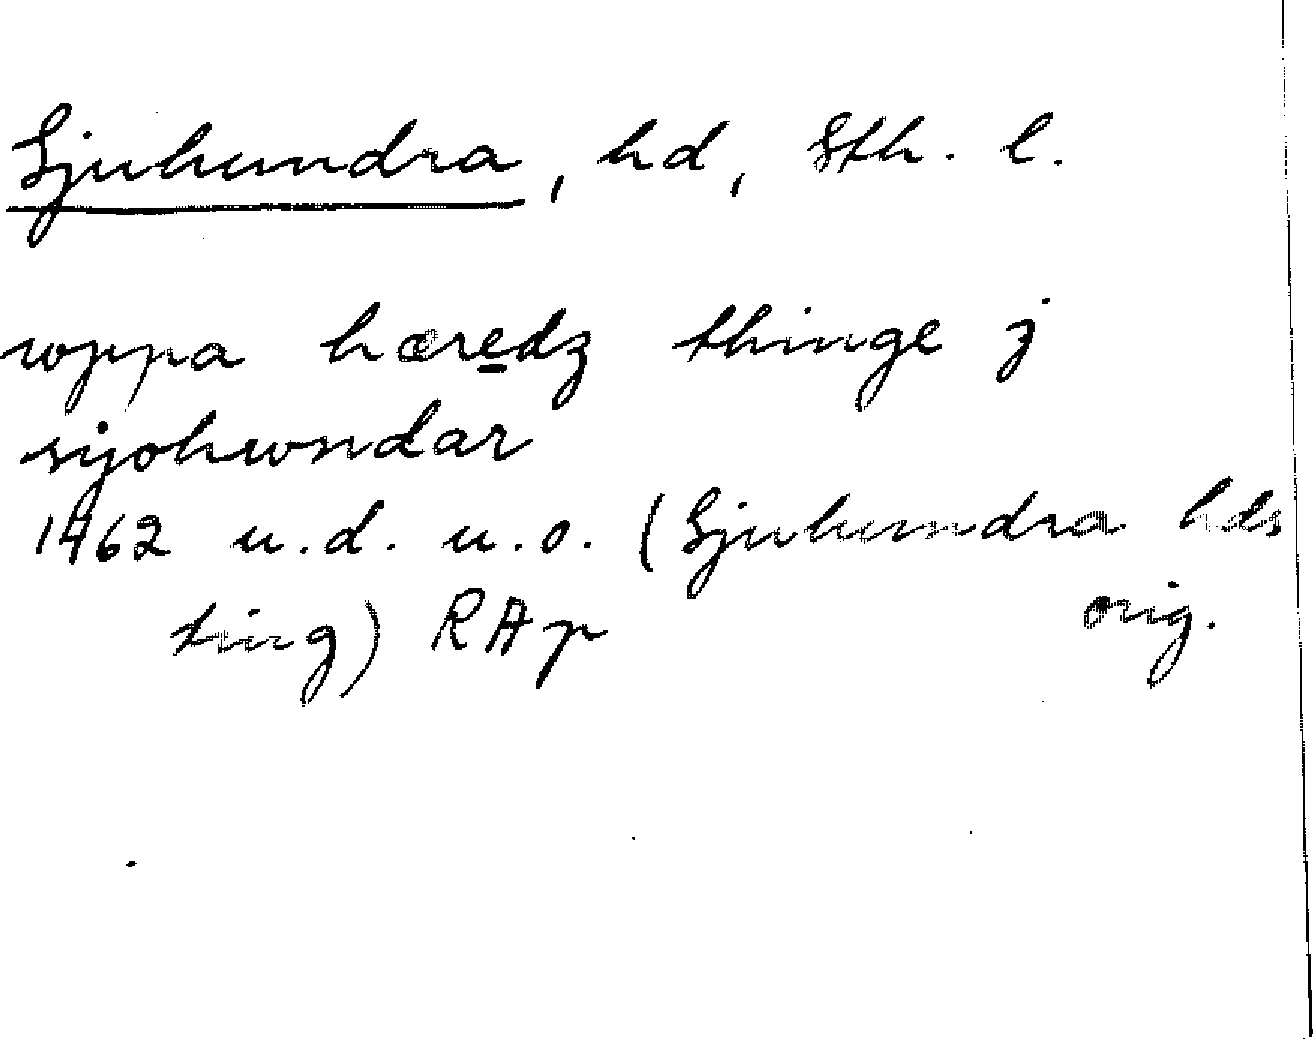 Sjuhundra, hd, Sth. l.
wppa hæredz thinge j
syohwndar
1462 u.d. u.o. (Sjuhundra hds
ting) RAp orig.